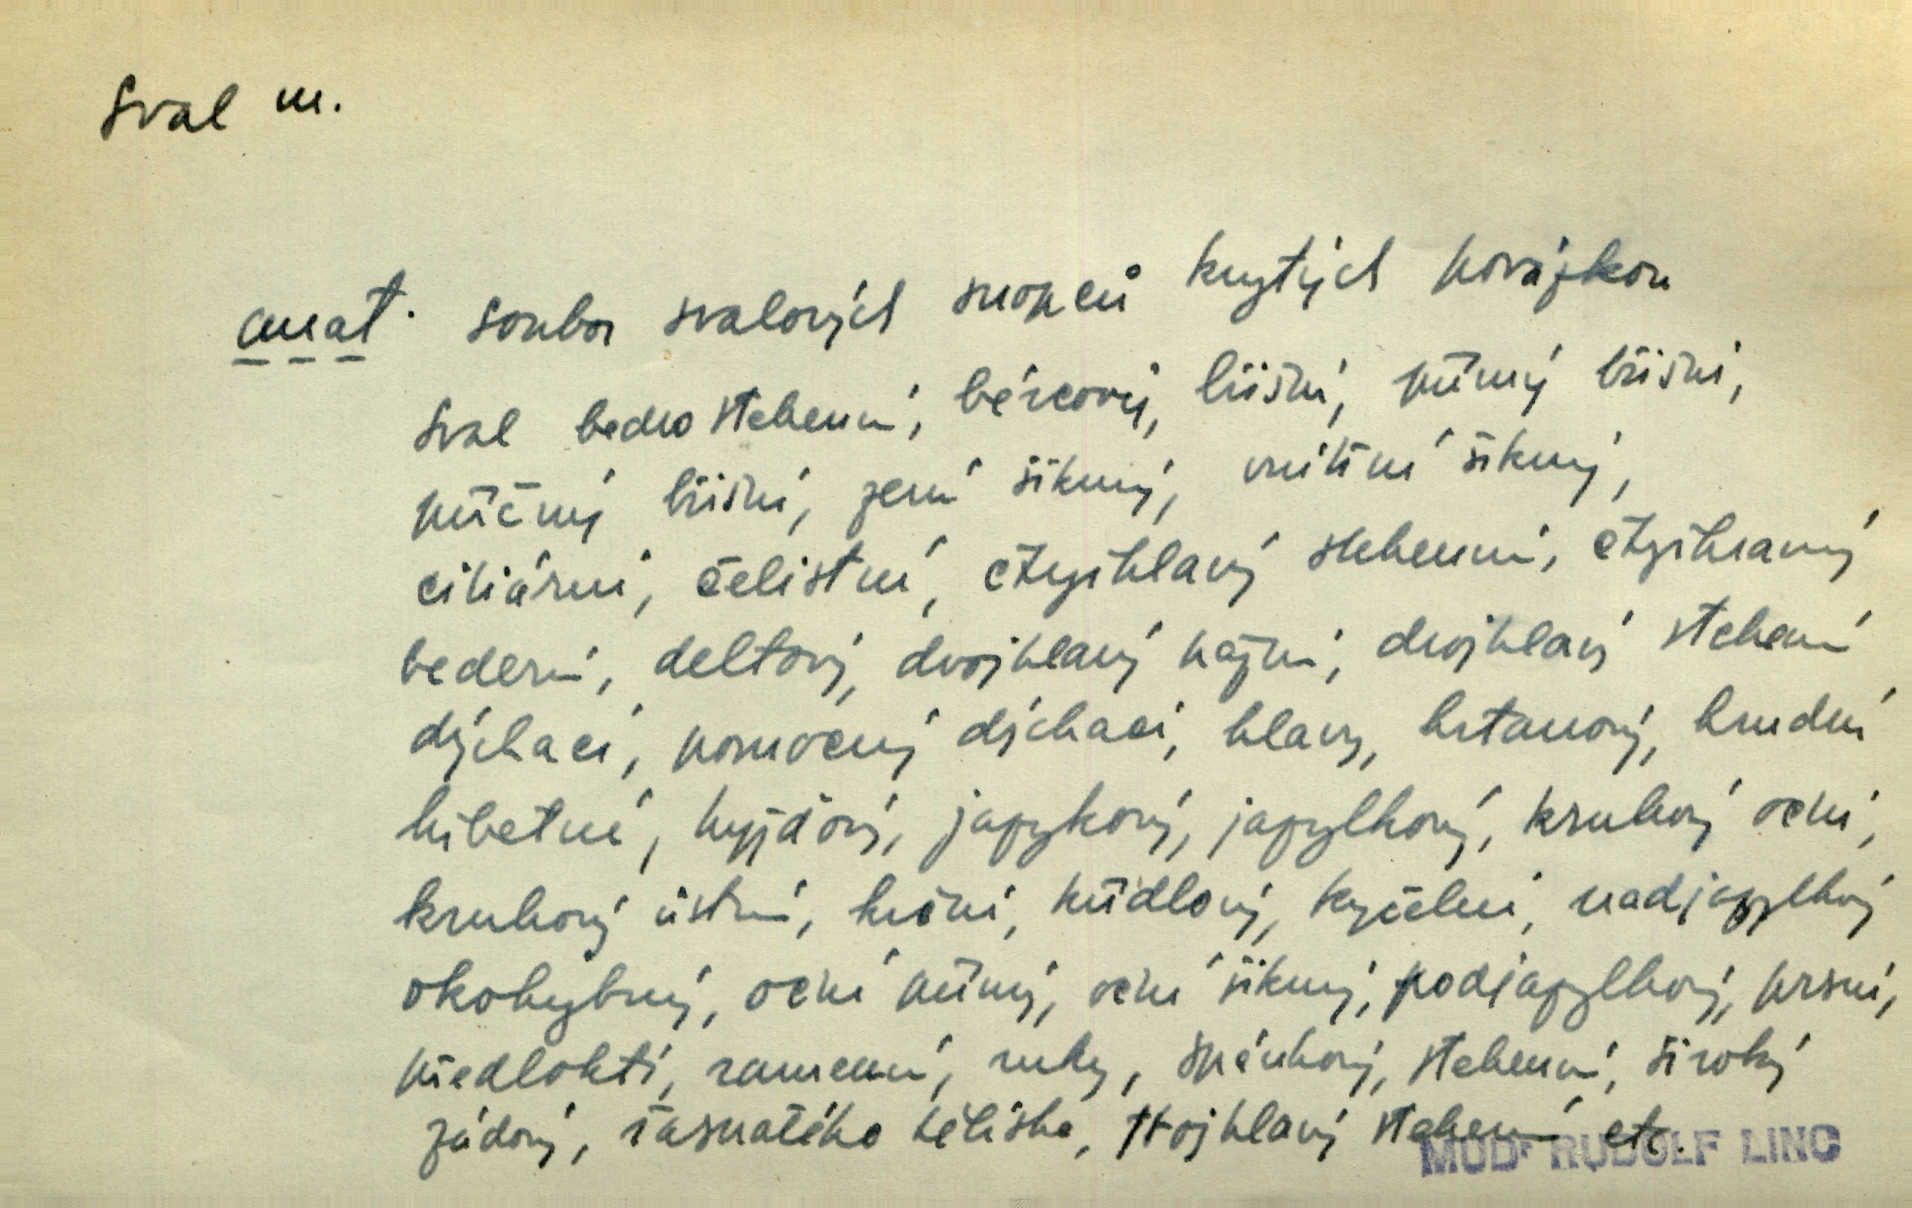 sval m.
anat. soubor svalových snopců krytých povázkou
sval bedrostehenní, bércový, břišní, přímý břišní,
příčný břišní, zevní šikmý, vnitřní šikmý,
ciliární, čelistní, čtyřhlavý stehenní, čtyřhranný
bederní, deltový, dvojhlavý pažní, dvojhlavý stehenní
dýchací, pomocný dýchací, hlavy, hrtanový, hrudní
hřbetní, hýžďový, jazykový, jazylkový, kruhový oční,
kruhový ústní, krční, křídlový, kyčelní, nadjazylkový
okohybný, oční přímý, oční šikmý, podjazylkový, prsní,
předloktí, ramenní, ruky, spánkový, stehenní, široký
zádový, řasnatého tělíska, trojhlavý stehenní etc.
MUDr RUDOLF LINC